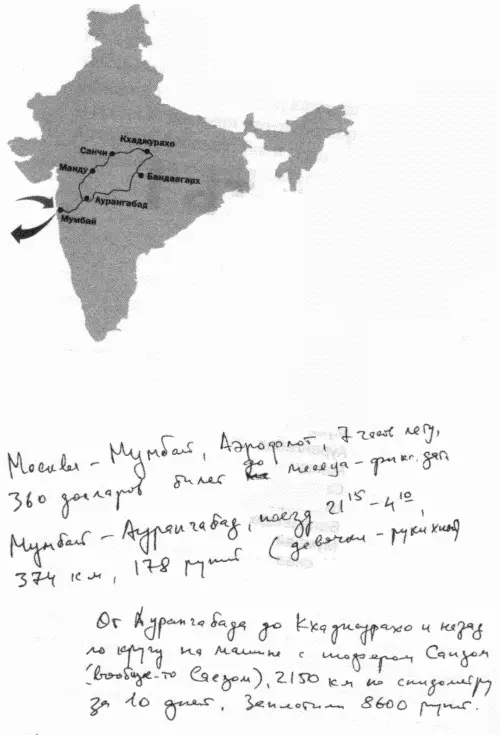 Кхаджурахо
Санчи
Манду
Бандавгарх
Аурангабад
Мумбай
Москва – Мумбай, Аэрофлот, 7 часов лету,
360 долларов билет до месяца – фикс. дат
Мумбай – Аурангабад, поезд 21 15 – 4 10,
374 км, 178 рупий (девочки –
От Аурангабада до Кхаджурахо и назад
по кругу на машине с шофером Саидом
(вообще-то Саедом), 2150 км по спидометру
за 10 дней. Заплатили 8600 рупий.